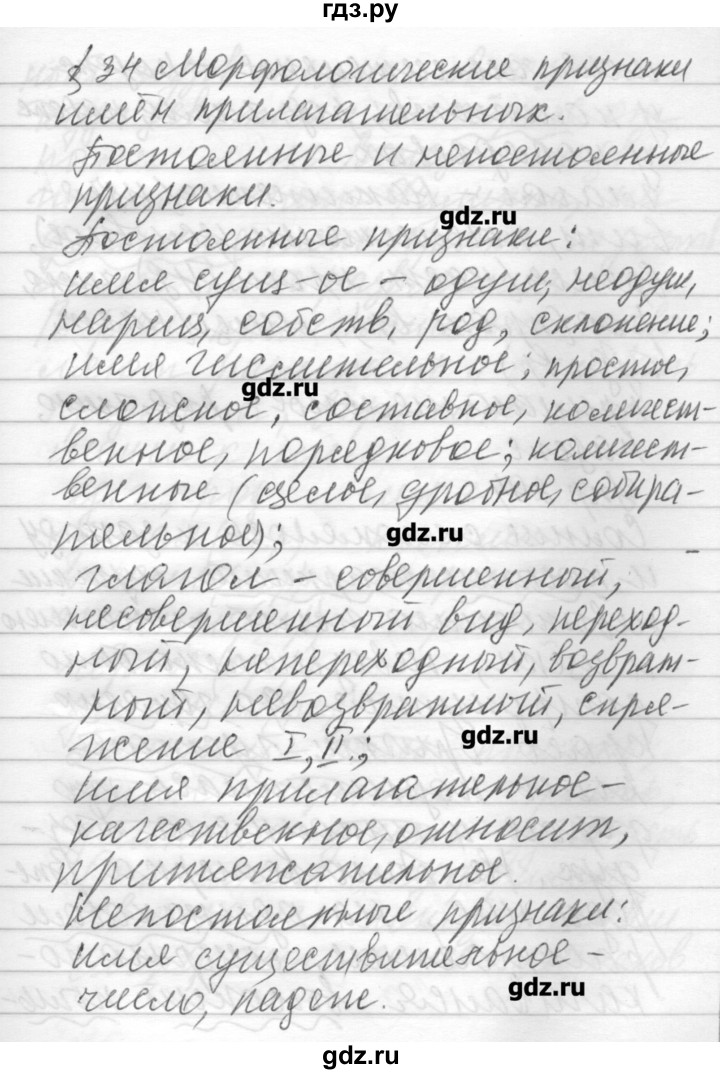 гдз.ру
§ 34 Морфологические признаки
имён прилагательных.
Постоянные и непостоянные
признаки.
gdz.ru
Постоянные признаки:
имя сущ-ое – одуш, неодуш,
нариц, собств, род, склонение;
имя числительное; простое,
gdz.ru
сложное, составное, количест-
венное, порядковое; количест-
венные (целое, дробное, собира-
тельное);
gdz.ru
глагол – совершенный,
несовершенный вид, переход-
ный, непереходный, возврат-
ный, невозвратный, спря-
жение I, II.;
gdz.ru
имя прилагательное –
качественное, относит,
притяжательное.
Непостоянные признаки:
имя существительное –
число, падеж.
gdz.ru
gdz.ru